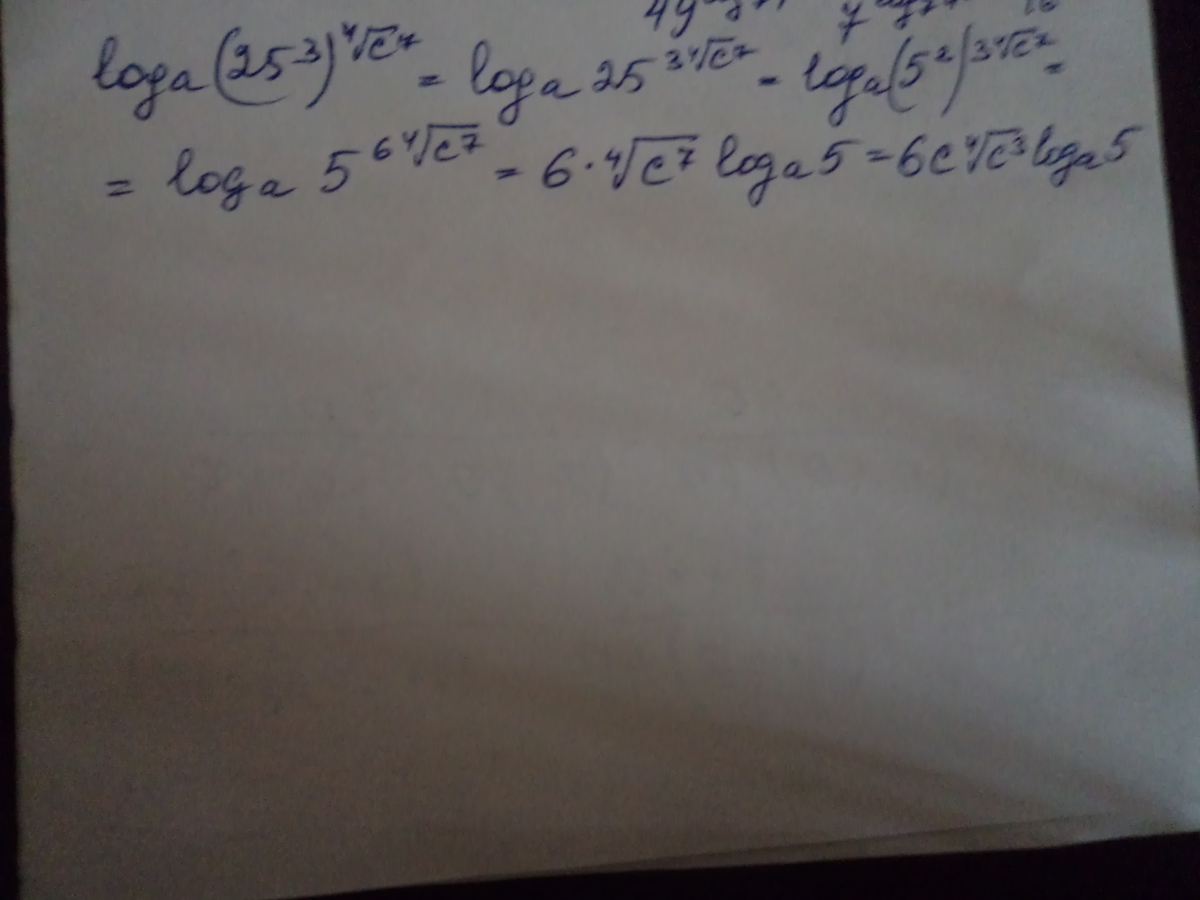 logₐ(25³)^⁴√c⁷ = logₐ 25^3⁴√c⁷ = logₐ(5²)^3⁴√c⁷ =
= logₐ 5^6⁴√c⁷ = 6·⁴√c⁷ logₐ5 = 6c⁴√c³ logₐ5